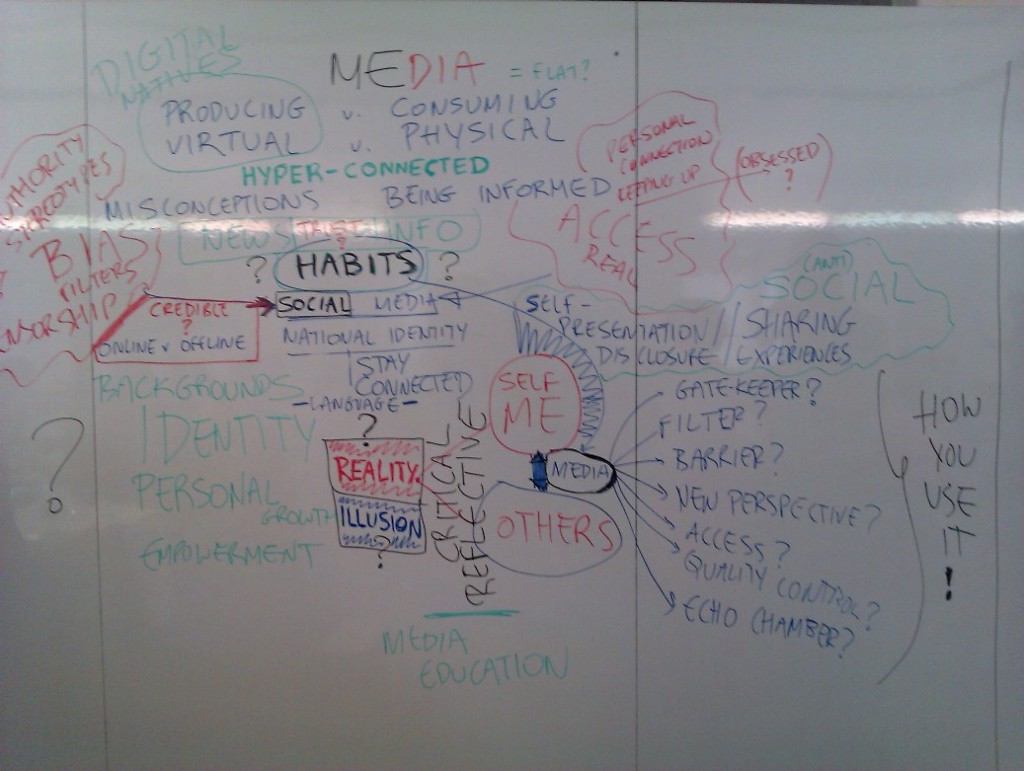 DIGITAL
NATIVES
MEDIA = FLAT?
PRODUCING v. CONSUMING
VIRTUAL v. PHYSICAL
HYPER-CONNECTED
MISCONCEPTIONS
BEING INFORMED
PERSONAL
CONNECTION
KEEPING UP
(OBSESSED)
?
ACCESS
REAL
BIAS
FILTERS
NEWS TRUST INFO
?
? HABITS ?
SOCIAL MEDIA
CREDIBLE
?
ONLINE v OFFLINE
NATIONAL IDENTITY
STAY
CONNECTED
-LANGUAGE-
(ANTI)
SOCIAL
SELF-
PRESENTATION // SHARING
DISCLOSURE / EXPERIENCES
BACKGROUNDS
IDENTITY
PERSONAL
GROWTH
EMPOWERMENT
?
?
REALITY
ILLUSION
?
CRITICAL
REFLECTIVE
SELF
ME
MEDIA
OTHERS
GATE-KEEPER?
FILTER?
BARRIER?
NEW PERSPECTIVE?
ACCESS?
QUALITY CONTROL?
ECHO CHAMBER?
HOW
YOU
USE
IT
!
MEDIA
EDUCATION